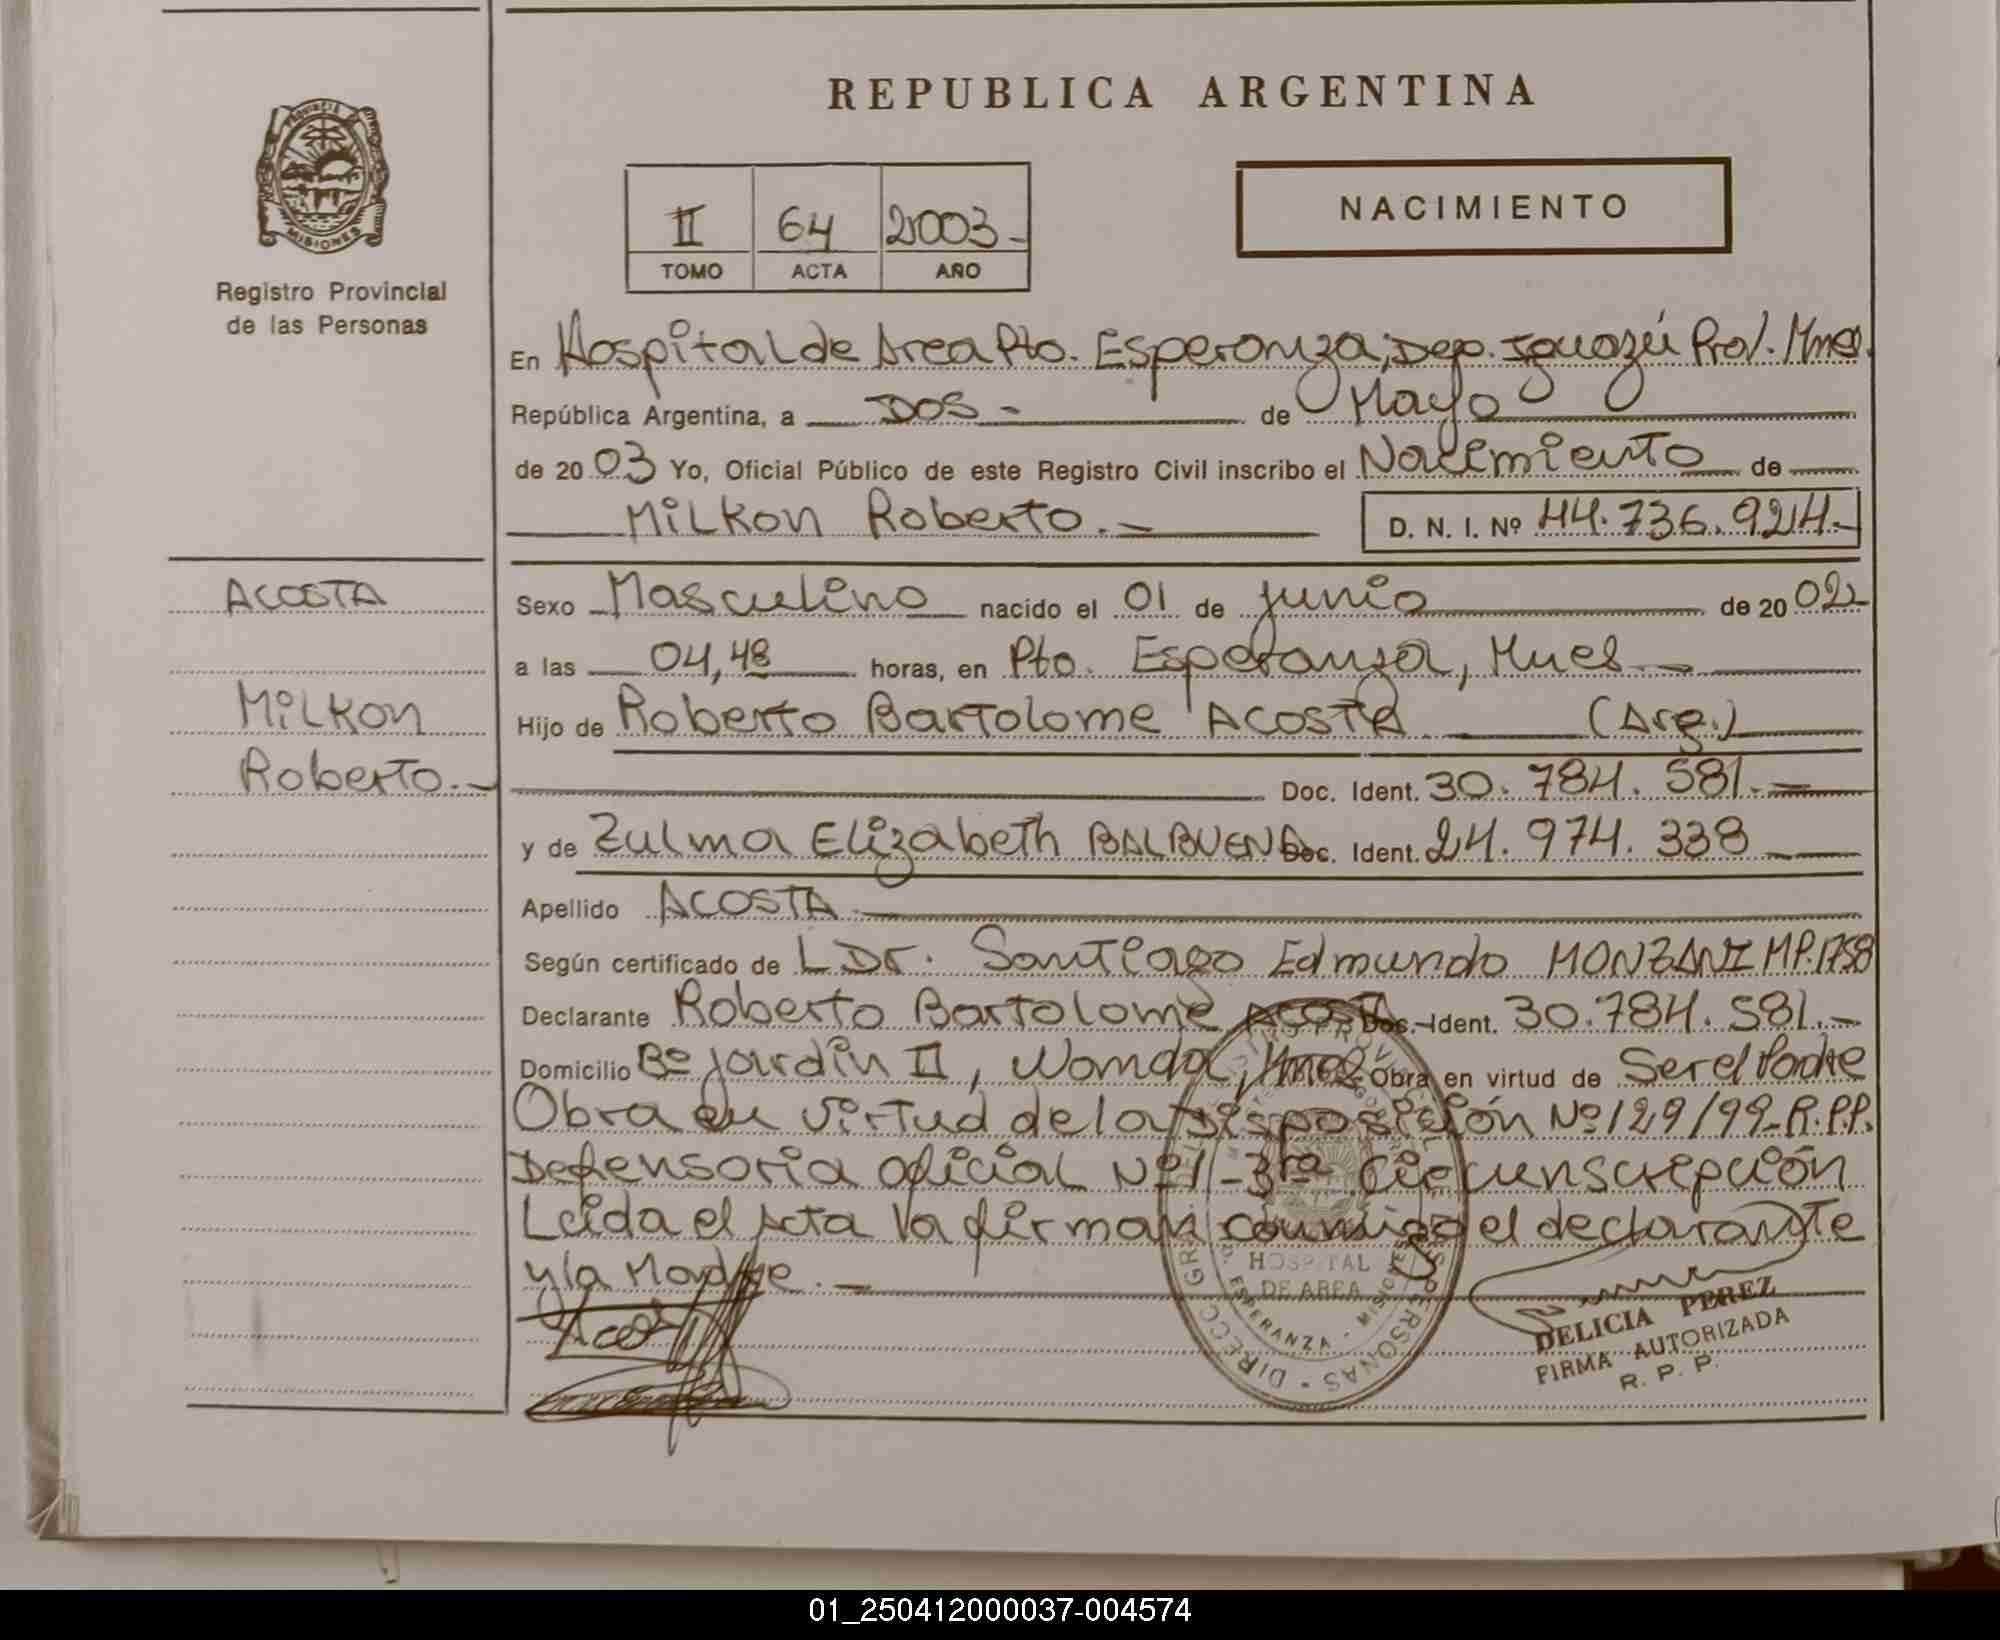 REPUBLICA ARGENTINA
PROVINCIA DE MISIONES
Registro Provincial
de las Personas
II 64 2003-
TOMO ACTA AÑO
NACIMIENTO
En Hospital de Area Pto. Esperanza, Dep. Iguazú Prov. Mnes.
República Argentina, a DOS - de Mayo
de 2003 Yo, Oficial Público de este Registro Civil inscribo el Nacimiento de
Milkon Roberto.- D. N. I. Nº 44.736.924.-
ACOSTA
Milkon
Roberto.-
Sexo Masculino nacido el 01 de junio de 2002
a las 04,48 horas, en Pto. Esperanza, Mnes.-
Hijo de Roberto Bartolome ACOSTA (Arg.)
Doc. Ident. 30.784.581.-
y de Zulma Elizabeth BALBUENA Doc. Ident. 24.974.338
Apellido ACOSTA
Según certificado de L Dr. Santiago Edmundo MONZANI MP.1758
Declarante Roberto Bartolome ACOSTA Doc. Ident. 30.784.581.-
Domicilio Bº Jardín II, Wanda, Mnes Obra en virtud de Ser el Padre
Obra en virtud de la Disposición Nº 129/99-R.P.P.
Defensoria oficial Nº1-3ra Circunscripción
Leida el Acta la firman conmigo el declarante
y la Madre.-
HOSPITAL
DE AREA
ESPERANZA - MISIONES
DELICIA PEREZ
FIRMA AUTORIZADA
R. P. P.
01_250412000037-004574